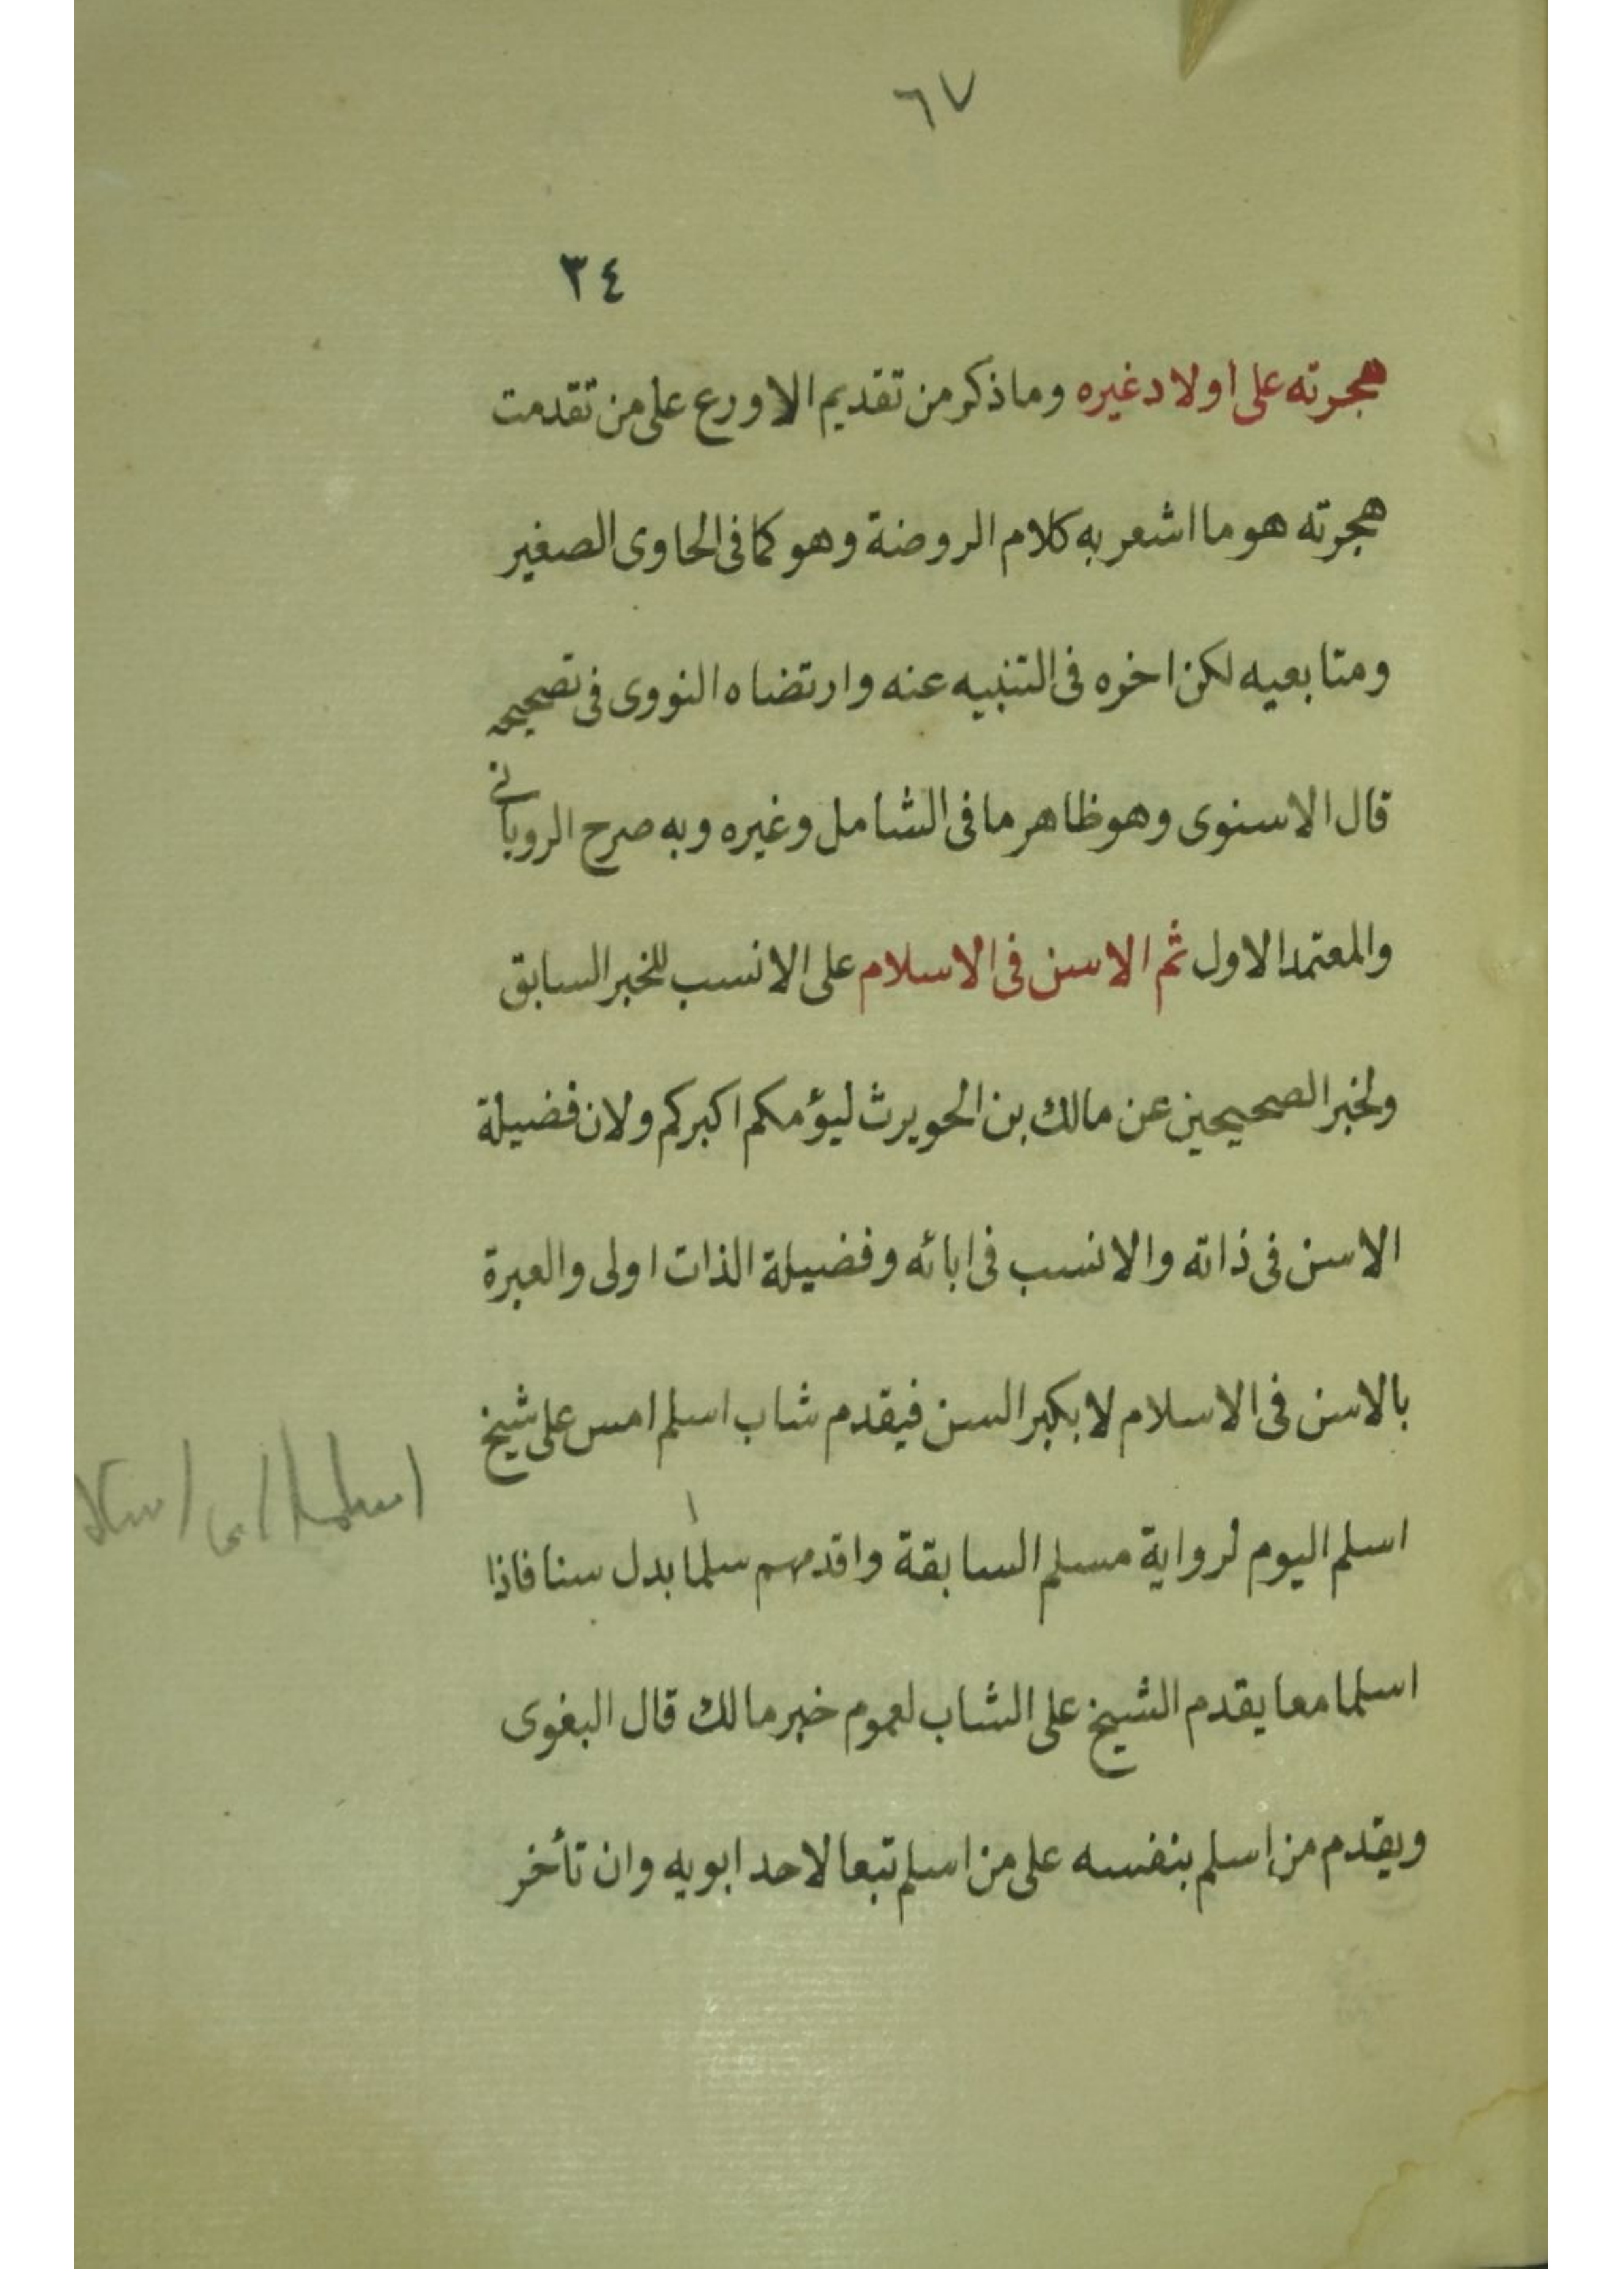 ٦٧
٣٤
هجرته على اولاد غيره وما ذكر من تقديم الاورع على من تقدمت
هجرته هو ما اشعر به كلام الروضة وهو كما فى الحاوى الصغير
ومتابعيه لكن اخره فى التنبيه عنه وارتضاه النووى فى تصحيحه
قال الاسنوى وهو ظاهر ما فى الشامل وغيره وبه صرح الرويانى
والمعتمد الاول ثم الاسن فى الاسلام على الانسب للخبر السابق
ولخبر الصحيحين عن مالك بن الحويرث ليؤمكم اكبركم ولان فضيلة
الاسن فى ذاته والانسب فى ابائه وفضيلة الذات اولى والعبرة
بالاسن فى الاسلام لا بكبر السن فيقدم شاب اسلم امس على شيخ
اسلم اليوم لرواية مسلم السابقة واقدمهم سلما بدل سنا فاذا
اسلما معا يقدم الشيخ على الشاب لعموم خبر مالك قال البغوى
ويقدم من اسلم بنفسه على من اسلم تبعا لاحد ابويه وان تأخر